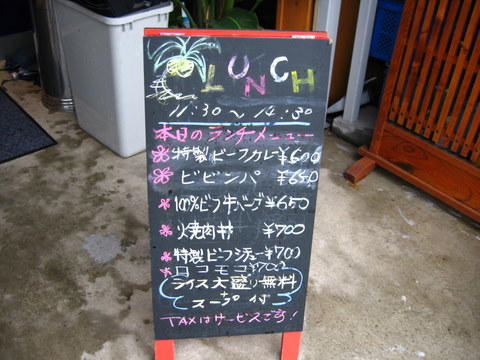 LUNCH
11:30〜14:30
本日のランチメニュー
特製ビーフカレー ¥600
ビビンバ ¥650
100%ビーフハンバーグ ¥650
焼肉丼 ¥700
特製ビーフシチュー ¥700
ロコモコ ¥700
ライス大盛り無料
+
スープ付
TAXはサービスです!